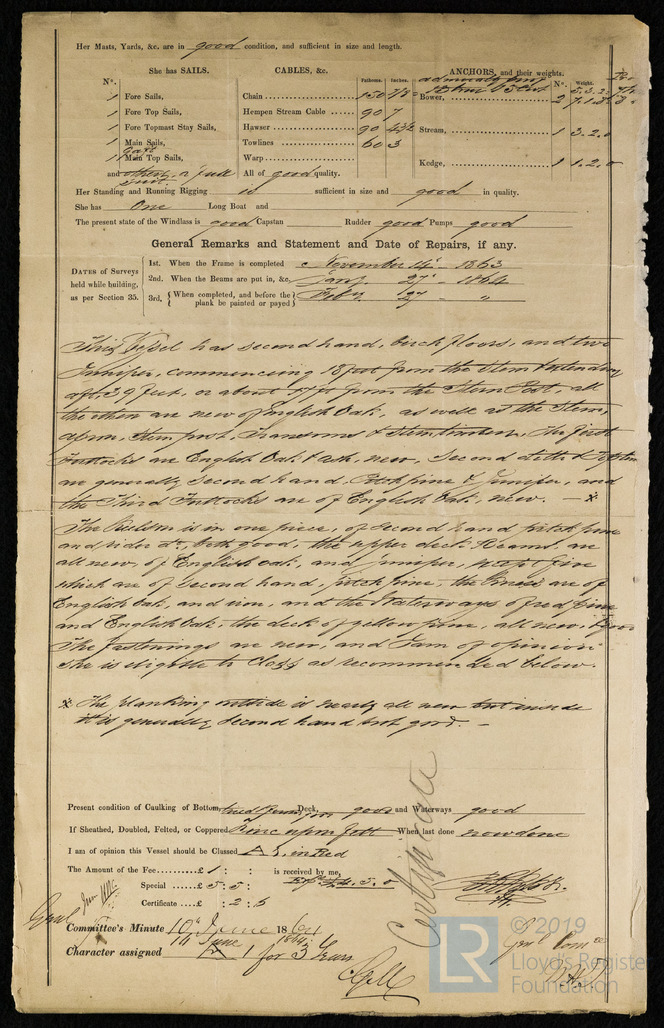 Her Masts, Yards, &c. are in good condition, and sufficient in size and length.
She has SAILS. CABLES, &c. ANCHORS, and their weights.
Nº. Fathoms. Inches. Nº. Weight.
1 Fore Sails, Chain 150 7/8 Bower, 2
1 Fore Top Sails, Hempen Stream Cable 90 7
1 Fore Topmast Stay Sails, Hawser 90 4½ Stream, 1 3.2.0
1 Main Sails, Towlines 60 3
1 Gaft Main Top Sails, Warp Kedge, 1 1.2.0
and others, a full suit. All of good quality.
Her Standing and Running Rigging is sufficient in size and good in quality.
She has One Long Boat and
The present state of the Windlass is good Capstan Rudder good Pumps good
General Remarks and Statement and Date of Repairs, if any.
DATES of Surveys held while building, as per Section 35.
1st. When the Frame is completed November 14th 1863
2nd. When the Beams are put in, &c. Jany. 27th 1864
3rd. When completed, and before the plank be painted or payed Feby. 27 "
This Vessel has second hand, birch floors, and two
Juniper, commencing 18 foot from the Stem & extending
aft 39 feet, or about 17 ft from the Stern Post, all
the others are new of English Oak, as well as the Stem,
Apron, Stern post, Transoms & Stern timbers, The first
Futtocks are English Oak & ash, new, Second ditto &
are generally second hand, Pitch pine & Juniper, and
the Third Futtocks are of English Oak, new. — *
The Keelson is in one piece, of second hand pitch pine
and rider do. both good, the upper deck Beams, are
all new, of English oak, and juniper, except five
which are of second hand, pitch pine, the Knees are of
English Oak, and iron, and the Waterways of red pine
and English Oak; the deck of yellow pine, all new,
The fastenings are new, and I am of opinion
she is eligible to Class as recommended below.
* The planking outside is nearly all new but inside
it is generally second hand but good. —
Present condition of Caulking of Bottom, Deck, good and Waterways good
If Sheathed, Doubled, Felted, or Coppered Zinc upon felt When last done now done
I am of opinion this Vessel should be Classed Æ, in Red
The Amount of the Fee £1 : : is received by me,
Special £5 : 5 :
Certificate £ : 2 : 6
Certificate
Committee's Minute 10th June 1864
14 June 1864
Character assigned 1 for 3 Years
LR
© 2019
Lloyd's Register
Foundation